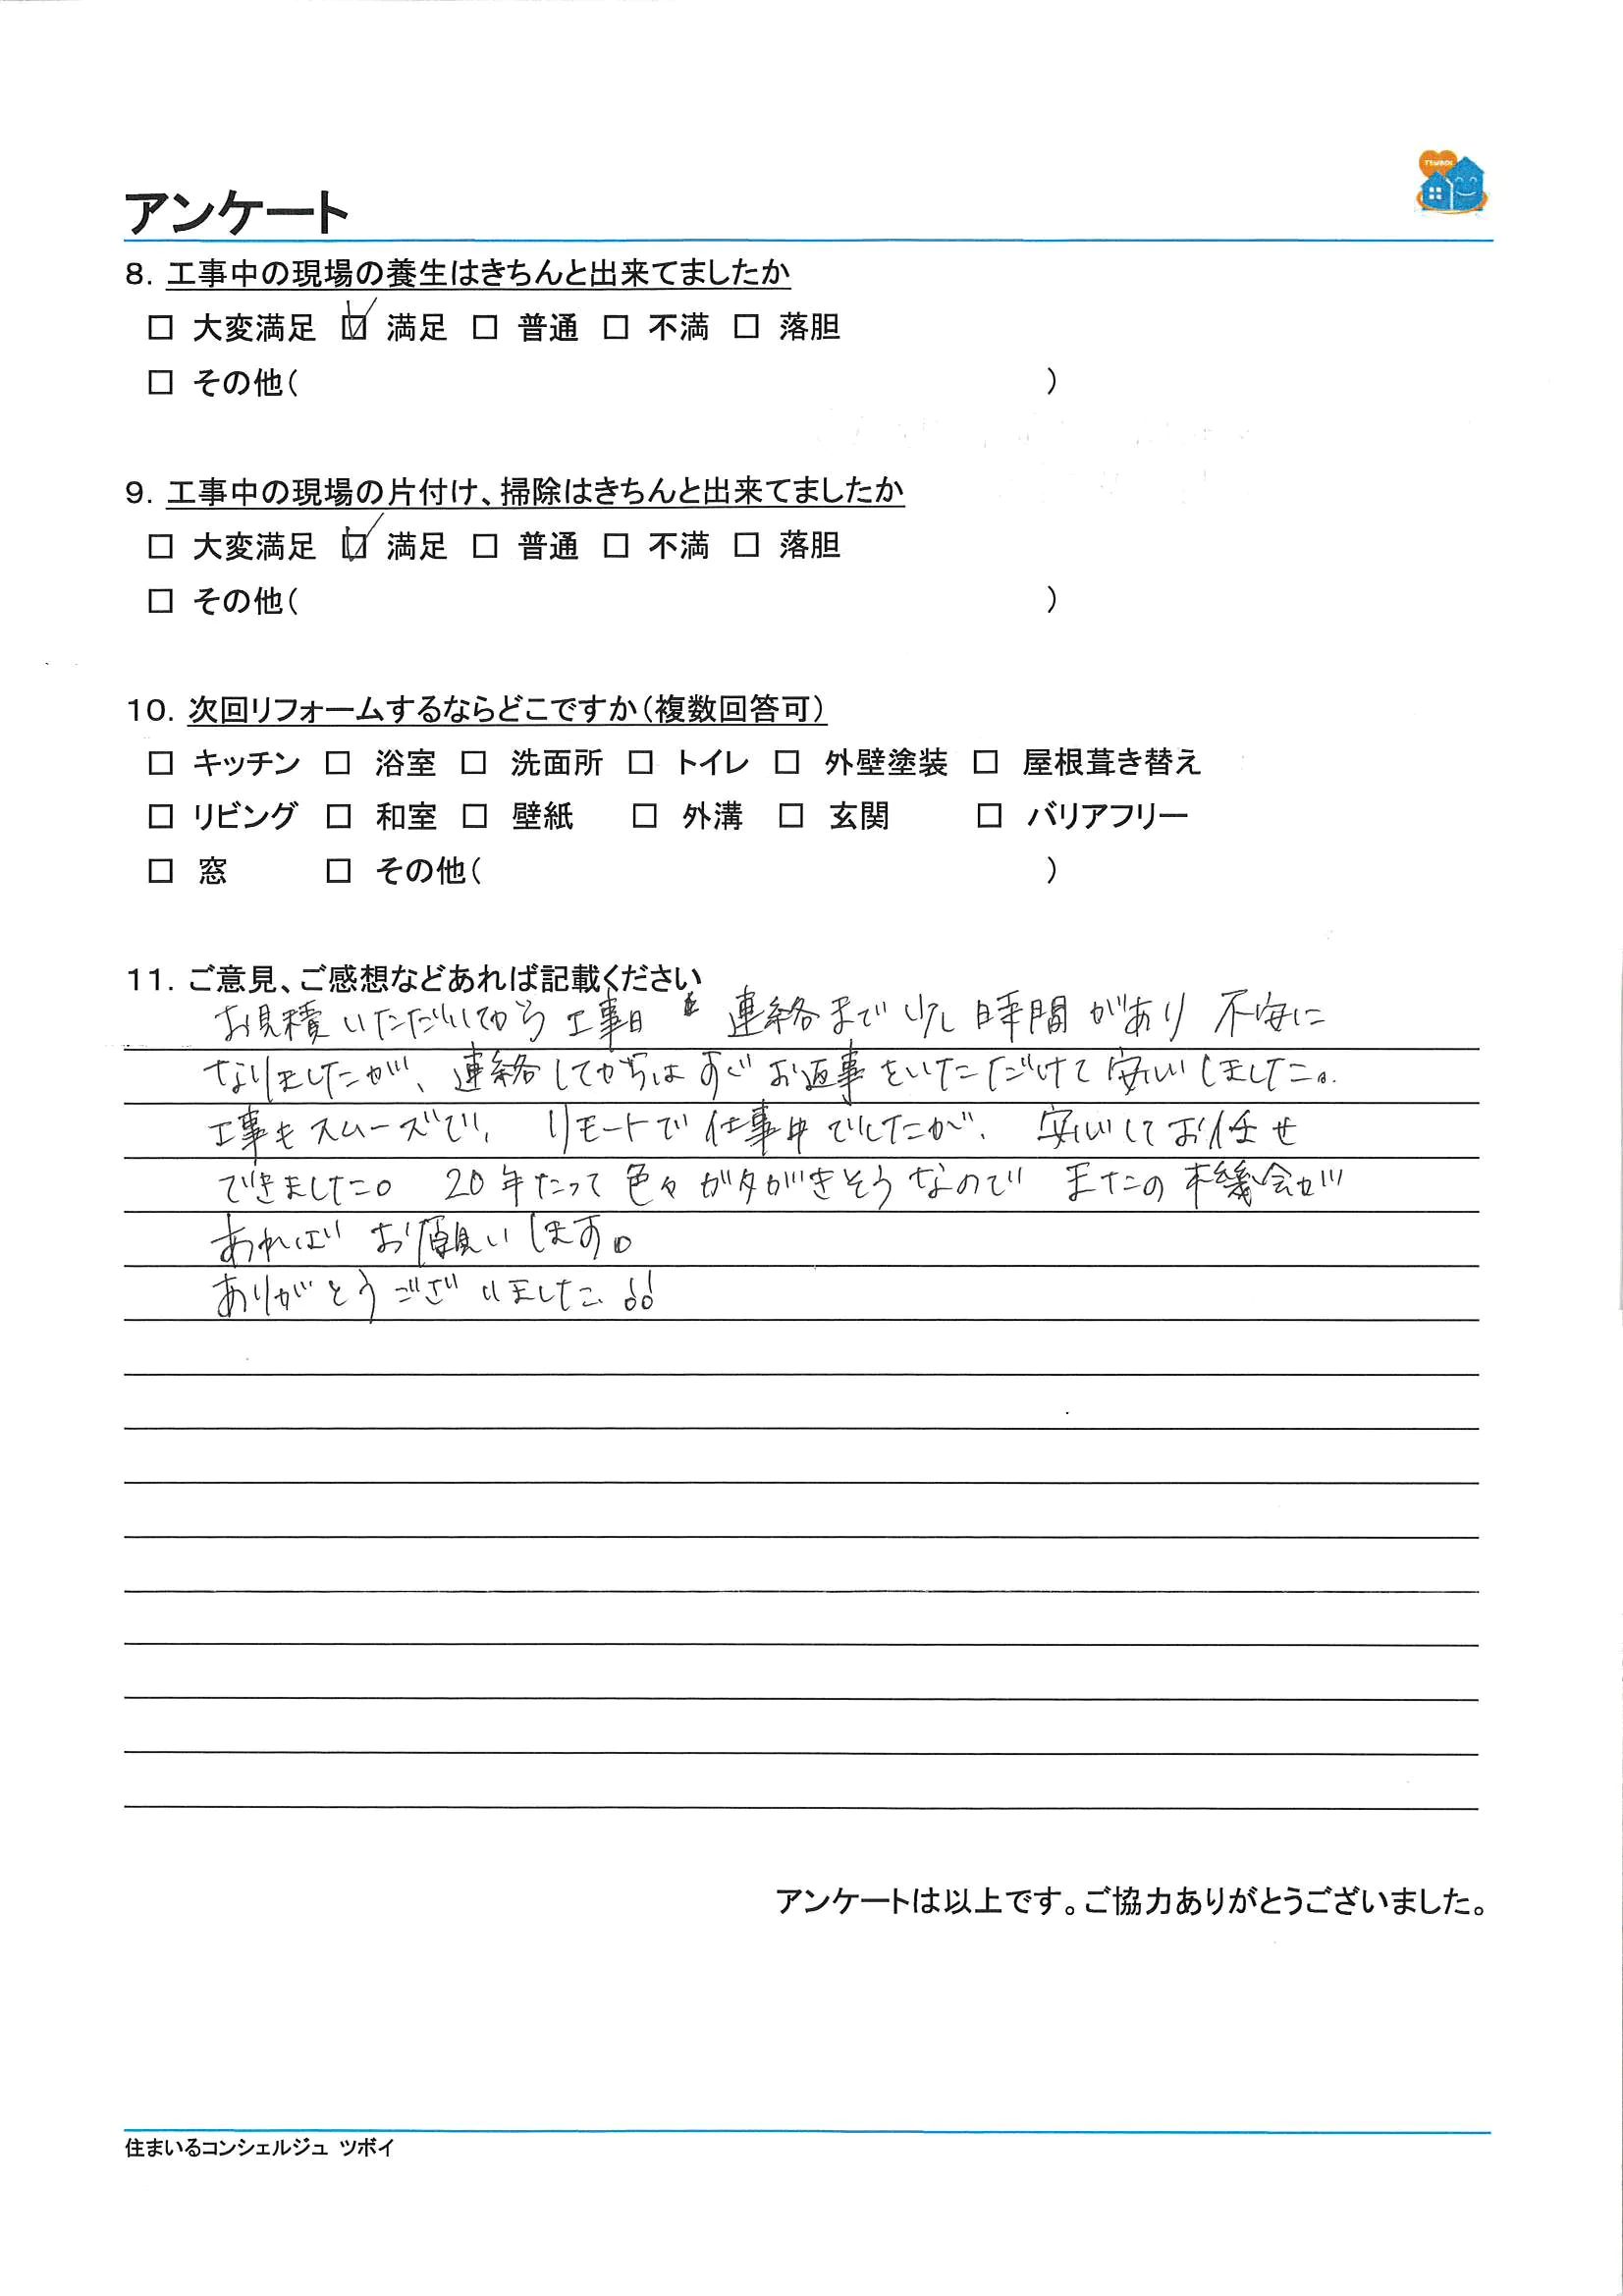 TSUBOI
アンケート
8. 工事中の現場の養生はきちんと出来てましたか
□ 大変満足 ☑ 満足 □ 普通 □ 不満 □ 落胆
□ その他( )
9. 工事中の現場の片付け、掃除はきちんと出来てましたか
□ 大変満足 ☑ 満足 □ 普通 □ 不満 □ 落胆
□ その他( )
10. 次回リフォームするならどこですか(複数回答可)
□ キッチン □ 浴室 □ 洗面所 □ トイレ □ 外壁塗装 □ 屋根葺き替え
□ リビング □ 和室 □ 壁紙 □ 外溝 □ 玄関 □ バリアフリー
□ 窓 □ その他( )
11. ご意見、ご感想などあれば記載ください
お見積いただいてから 工事日 連絡まで 少し 時間 があり 不安に
なりましたが、連絡してからは すぐ お返事をいただけて 安心しました。
工事もスムーズで、リモートで仕事中でしたが、安心してお任せ
できました。 20年たって 色々ガタがきそうなので またの機会が
あれば お願いします。
ありがとうございました!!
アンケートは以上です。ご協力ありがとうございました。
住まいるコンシェルジュ ツボイ